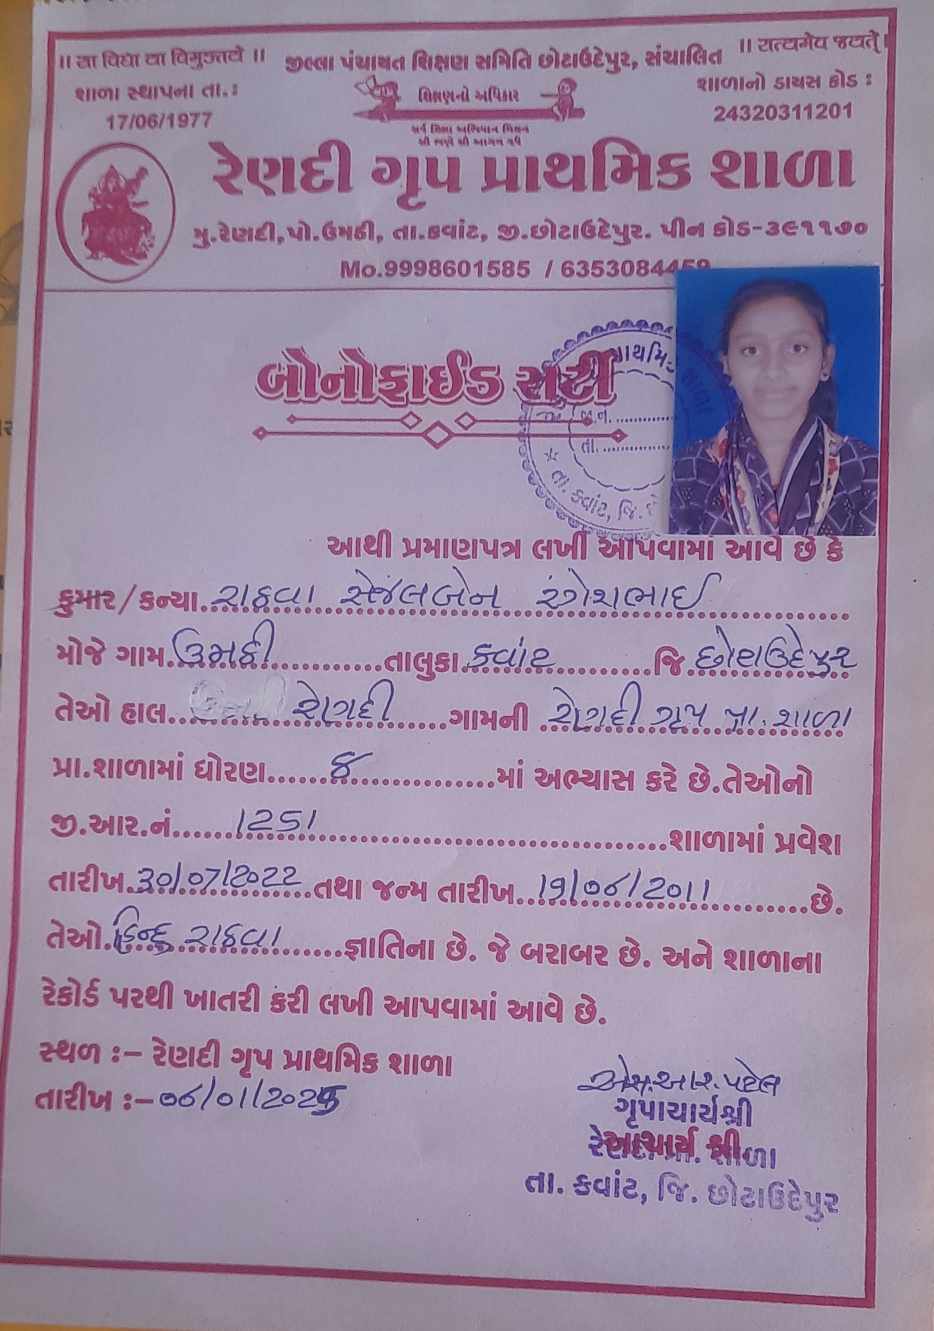 ॥ सा विद्या या विमुक्तये ॥
જીલ્લા પંચાયત શિક્ષણ સમિતિ છોટાઉદેપુર, સંચાલિત
॥ सत्यमेव जयते ॥
શાળા સ્થાપના તા.:
17/06/1977
શિક્ષણનો અધિકાર
સર્વ શિક્ષા અભિયાન મિશન
શાળાનો ડાયસ કોડ :
24320311201
રેણદી ગૃપ પ્રાથમિક શાળા
મુ.રેણદી,પો.ઉમઠી, તા.કવાંટ, જી.છોટાઉદેપુર. પીન કોડ-૩૯૧૧૭૦
Mo.9998601585 / 6353084459
બોનોફાઈડ સર્ટી
તા. કવાંટ, જિ.
આથી પ્રમાણપત્ર લખી આપવામાં આવે છે કે
કુમાર/કન્યા..રાઠવા સેજલબેન રંગેશભાઈ
મોજે ગામ.ઉમઠી............તાલુકા.કવાંટ..........જિ છોટાઉદેપુર
તેઓ હાલ.. રેણદી......ગામની ..રેણદી ગૃપ પ્રા. શાળા
પ્રા.શાળામાં ધોરણ......૪..............માં અભ્યાસ કરે છે.તેઓનો
જી.આર.નં......1251......................................શાળામાં પ્રવેશ
તારીખ..30/07/2022..તથા જન્મ તારીખ...19/06/2011..........છે.
તેઓ.હિન્દુ રાઠવા......જ્ઞાતિના છે. જે બરાબર છે. અને શાળાના
રેકોર્ડ પરથી ખાતરી કરી લખી આપવામાં આવે છે.
સ્થળ :– રેણદી ગૃપ પ્રાથમિક શાળા
તારીખ :–06/01/2025
એસ.આર.પટેલ
ગૃપાચાર્યશ્રી
આચાર્ય શ્રી
રેણદી પ્રા. શાળા
તા. કવાંટ, જિ. છોટાઉદેપુર